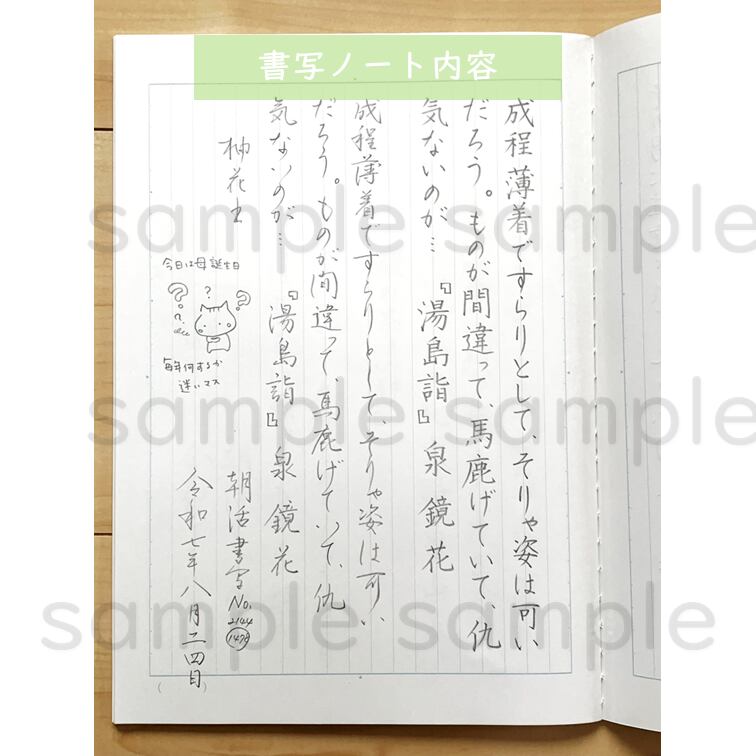 書写ノート内容
成程薄着ですらりとして、そりゃ姿は可い
だろう。ものが間違って、馬鹿げていて、仇
気ないのが…『湯島詣』泉鏡花
成程薄着ですらりとして、そりゃ姿は可い
だろう。ものが間違って、馬鹿げていて、仇
気ないのが…『湯島詣』泉鏡花
柚花士
朝活書写No.2144
1478
令和七年八月二四日
今日は母誕生日
毎年何するか
迷いマス
sample sample
sample sample
sample sample